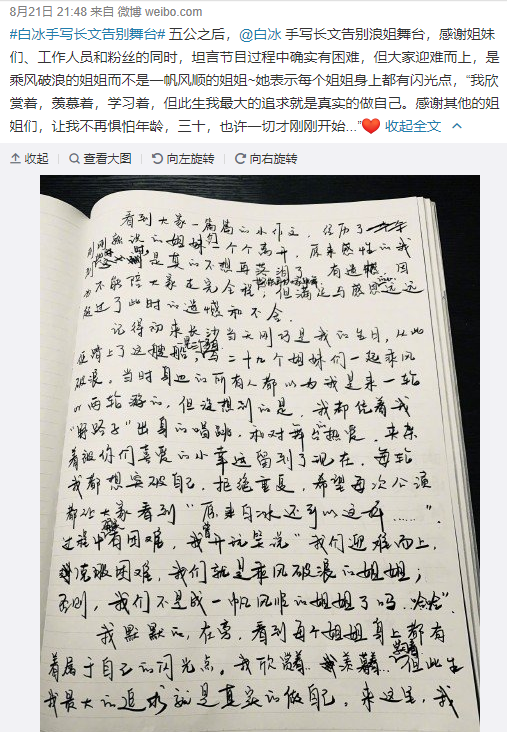 8月21日 21:48 来自 微博 weibo.com
#白冰手写长文告别舞台# 五公之后，@白冰 手写长文告别浪姐舞台，感谢姐妹
们、工作人员和粉丝的同时，坦言节目过程中确实有困难，但大家迎难而上，是
乘风破浪的姐姐而不是一帆风顺的姐姐~她表示每个姐姐身上都有闪光点，“我欣
赏着，羡慕着，学习着，但此生我最大的追求就是真实的做自己。感谢其他的姐
姐们，让我不再惧怕年龄，三十，也许一切才刚刚开始...”❤️ 收起全文
收起 查看大图 向左旋转 向右旋转
看到大家一篇篇的小作文，经历了
刚刚熟识的姐妹们一个个离开，原来感性的我
到 是真的不想再哭泪了，有遗憾，因
为不能陪大家走完全程，但满足与感恩远远
超过了此时的遗憾和不舍。
记得初来长沙当天刚巧是我的生日，从此
便踏上了这艘船，与二十九个姐妹们一起乘风
破浪，当时身边的所有人都以为我是来一轮
以两轮游的，但没想到的是，我却凭着我
“野路子”出身的唱跳，和对舞台热爱，夹杂
着被你们喜爱的小幸运留到了现在，每轮
我都想突破自己，拒绝重复，希望每次公演
都让大家看到“原来白冰还可以这样……”。
过程中有困难，我曾开玩笑说“我们迎难而上，
克服困难，我们就是乘风破浪的姐姐；
否则，我们不是成一帆风顺的姐姐了吗，哈哈”。
我默默的，在旁，看到每个姐姐身上都有
着属于自己的闪光点。我欣赏着，羡慕着，但此生
我最大的追求就是真实的做自己，来这里，我